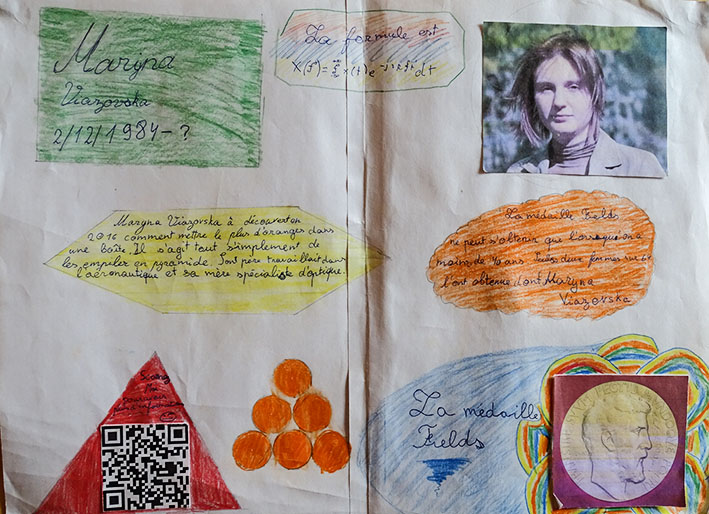 Maryna
Viazovska
2/12/1984-?
La formule est
X(f)=∫x(t)e^-j2πft dt
Maryna Viazovska à découvert en
2016 comment mettre le plus d'oranges dans
une boîte. Il s'agit tout simplement de
les empiler en pyramide. Sont père travaillait dans
l'aéronautique et sa mère spécialiste d'optique.
La médaille Fields
ne peut s'obtenir que lorsque on a
moins de 40 ans. deux femmes sur 64
l'ont obtenue dont Maryna
Viazovska
La médaille
Fields